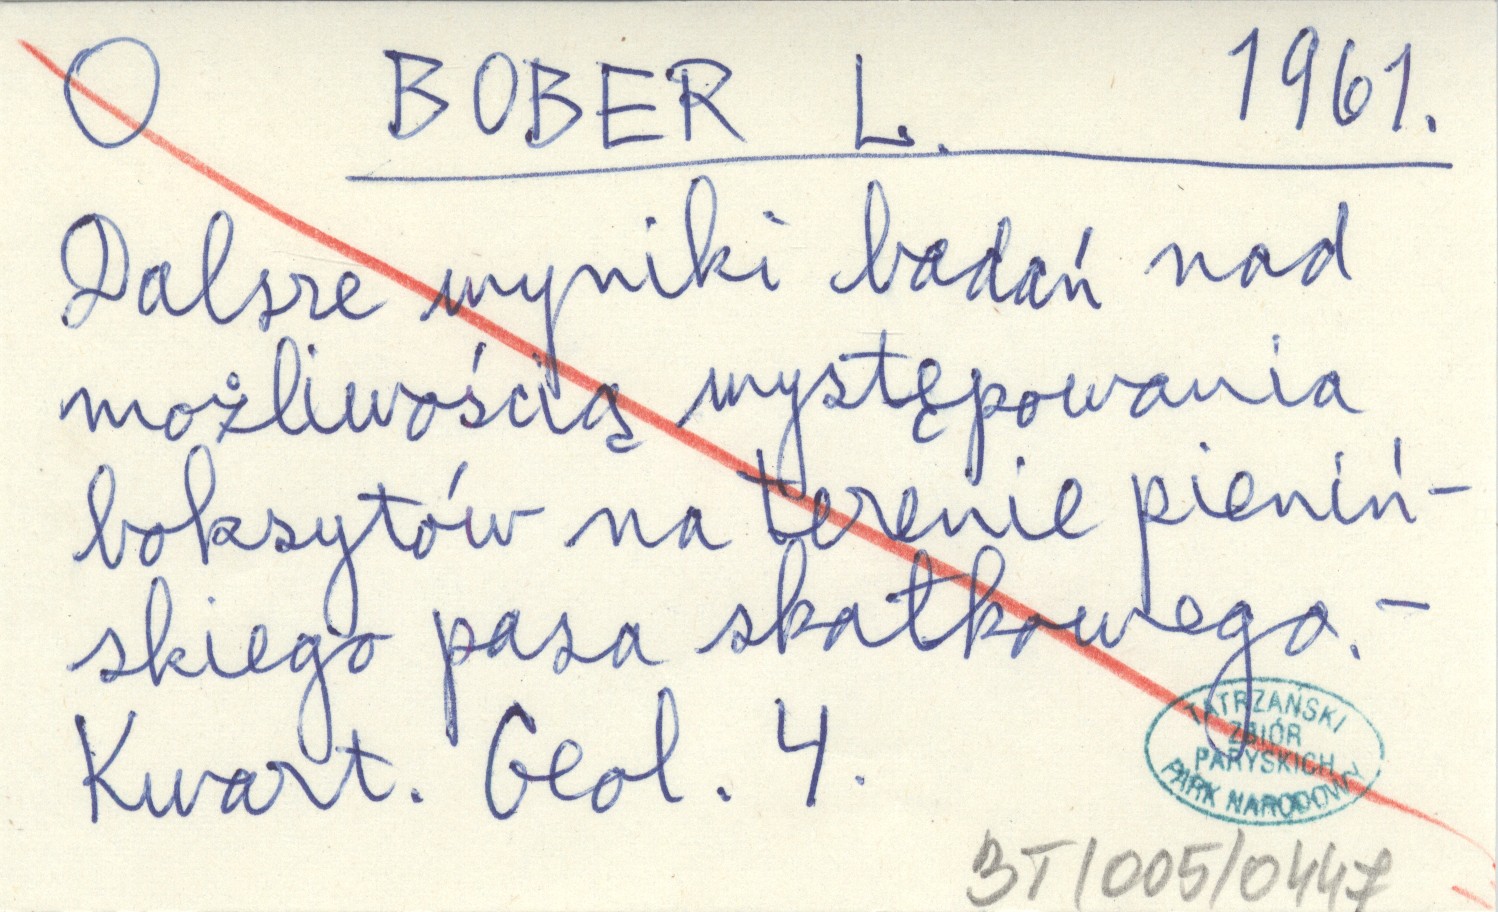 O BOBER L. 1961.
Dalsze wyniki badań nad
możliwością występowania
boksytów na terenie pieniń-
skiego pasa skałkowego. -
Kwart. Geol. 4.
TATRZAŃSKI
ZBIÓR
PARYSKICH
PARK NARODOWY
BT/005/0447